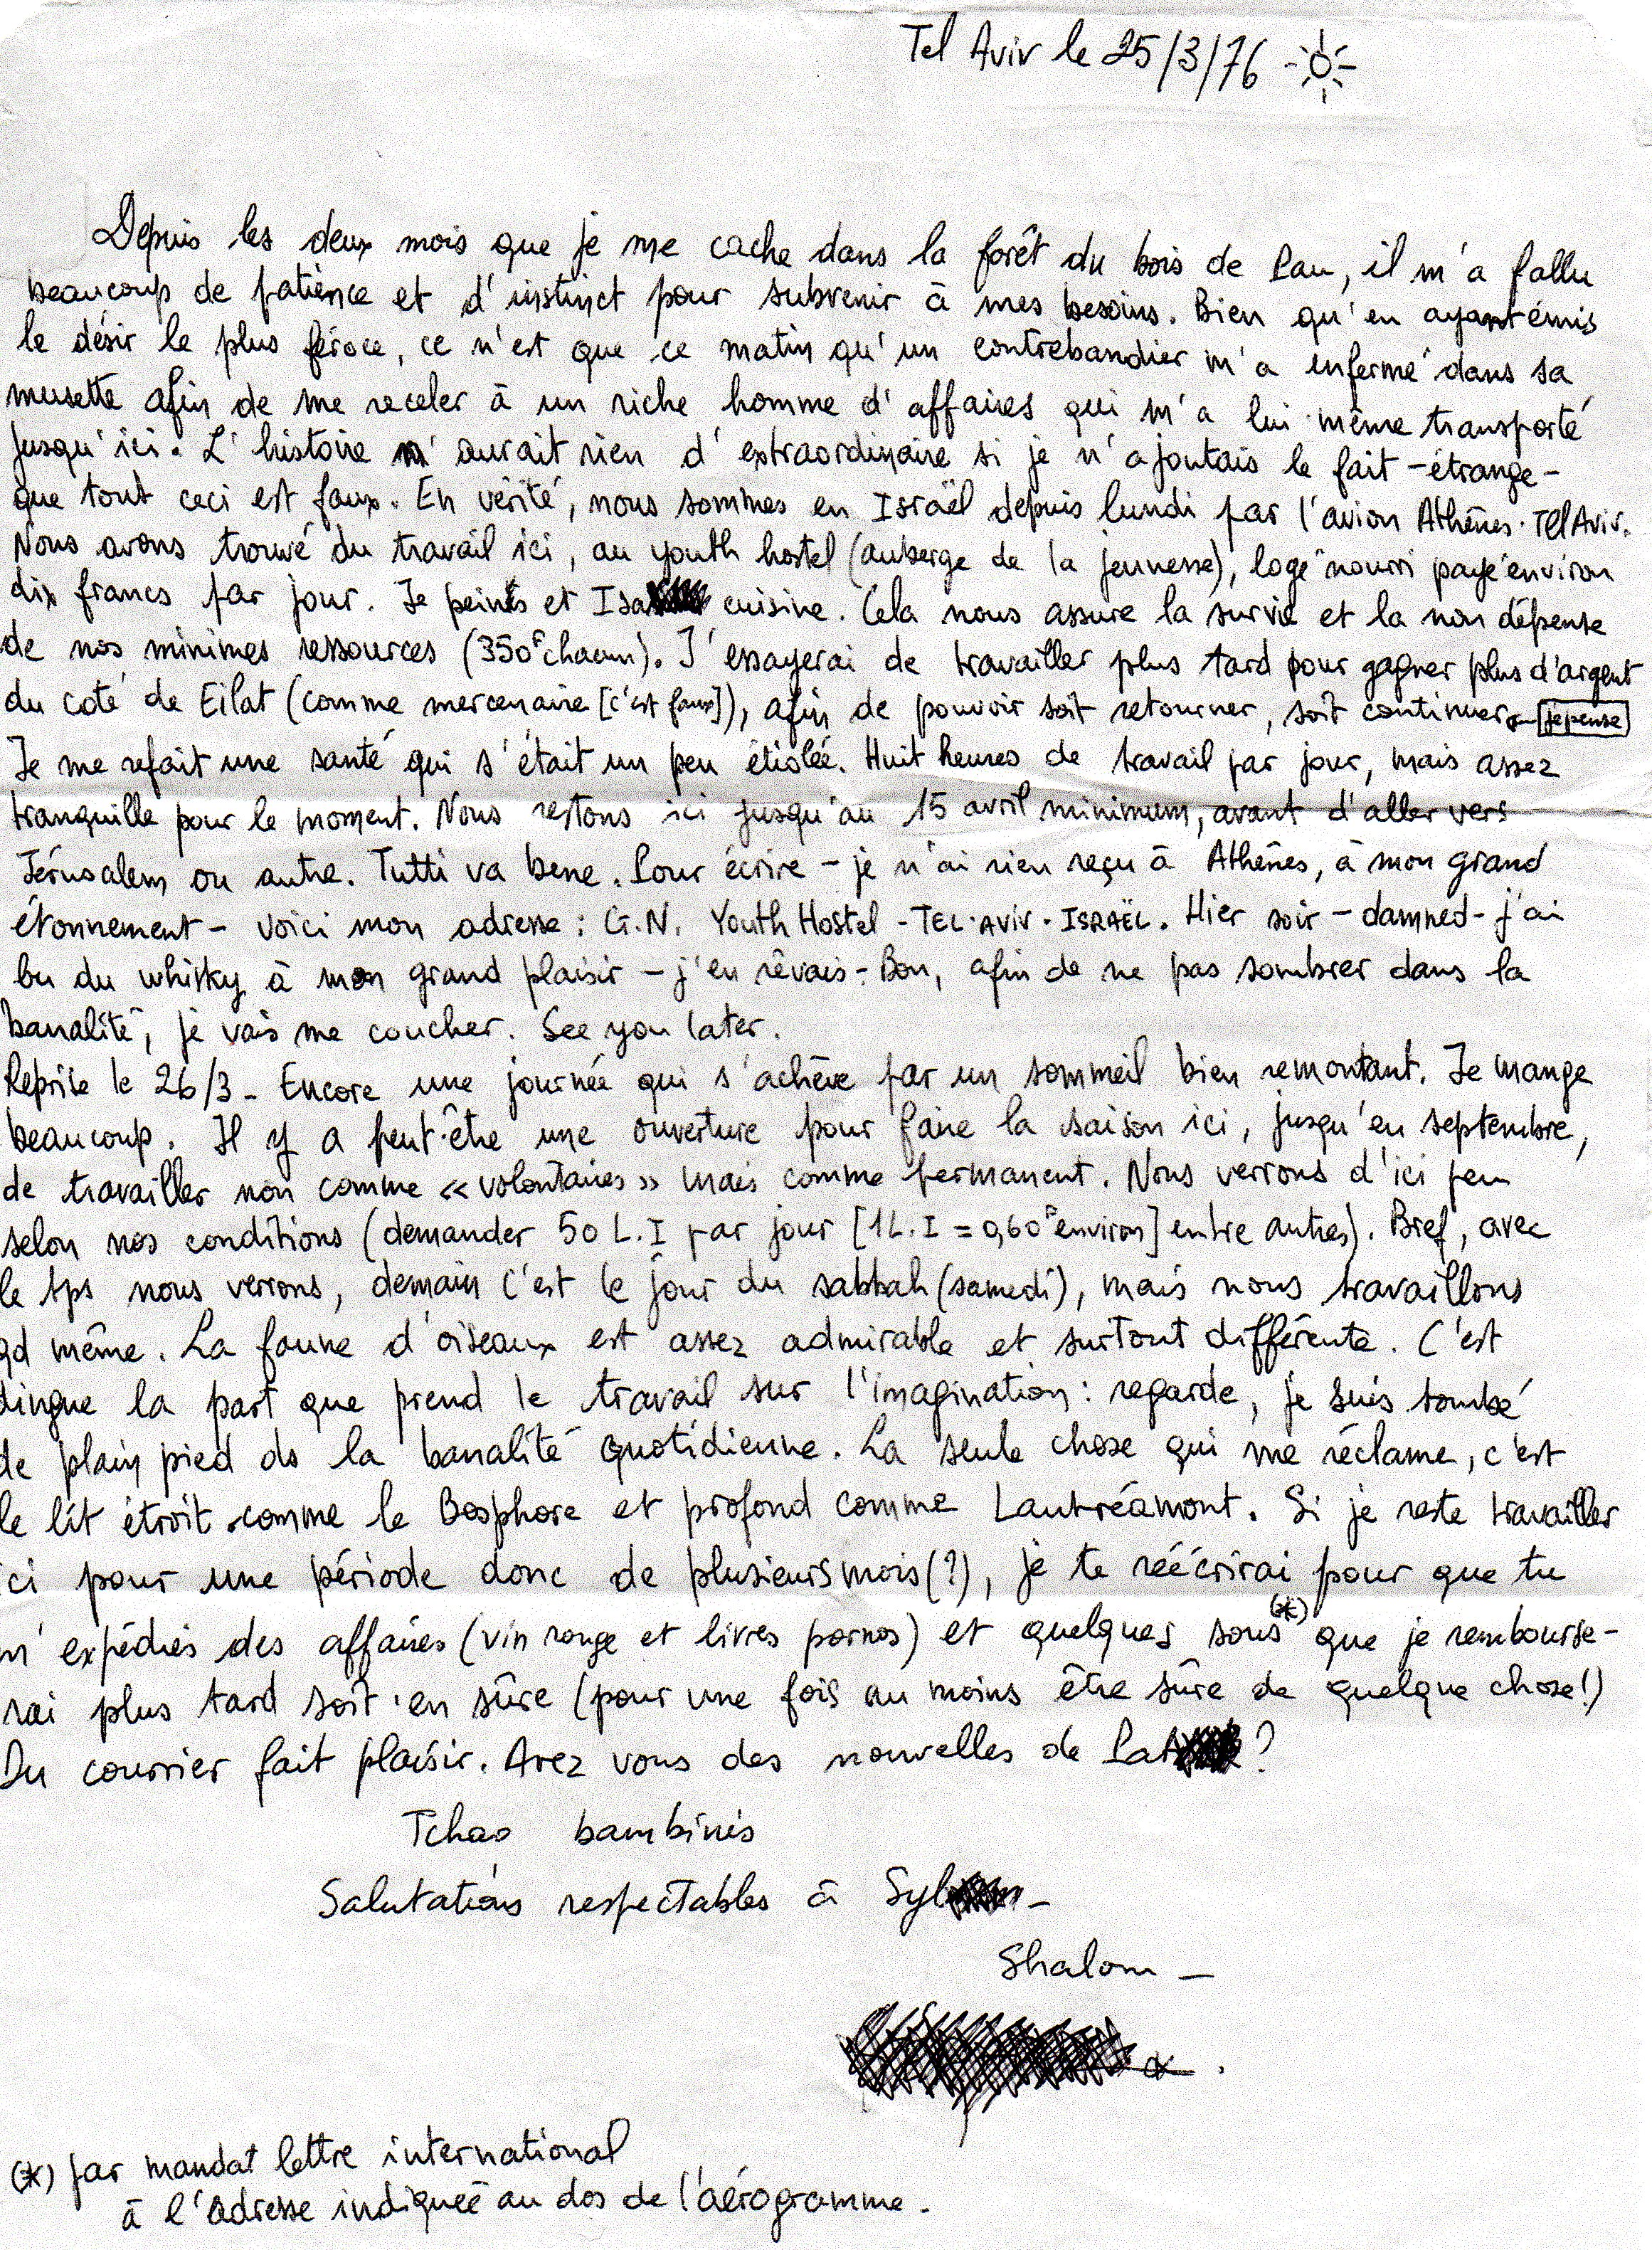 Tel Aviv le 25/3/76
Depuis les deux mois que je me cache dans la forêt du bois de Pau, il m'a fallu
beaucoup de patience et d'instinct pour subvenir à mes besoins. Bien qu'en ayant émis
le désir le plus féroce, ce n'est que ce matin qu'un contrebandier m'a enfermé dans sa
musette afin de me receler à un riche homme d'affaires qui m'a lui même transporté
jusqu'ici. L'histoire n'aurait rien d'extraordinaire si je n'ajoutais le fait - étrange -
que tout ceci est faux. En vérité, nous sommes en Israël depuis lundi par l'avion Athènes-Tel Aviv.
Nous avons trouvé du travail ici, au youth hostel (auberge de la jeunesse), logé nourri payé environ
dix francs par jour. Je peins et Isa cuisine. Cela nous assure la survie et la non dépense
de nos minimes ressources (350F chacun). J'essayerai de travailler plus tard pour gagner plus d'argent
du coté de Eilat (comme mercenaire [c'est faux]), afin de pouvoir soit retourner, soit continuer je pense
Je me refait une santé qui s'était un peu étiolée. Huit heures de travail par jour, mais assez
tranquille pour le moment. Nous restons ici jusqu'au 15 avril minimum, avant d'aller vers
Jérusalem ou autre. Tutti va bene. Pour écrire - je n'ai rien reçu à Athènes, à mon grand
étonnement - voici mon adresse : G.N. Youth Hostel - TEL-AVIV - ISRAËL. Hier soir - damned - j'ai
bu du whisky à mon grand plaisir - j'en rêvais - Bon, afin de ne pas sombrer dans la
banalité, je vais me coucher. See you later.
Reprise le 26/3 - Encore une journée qui s'achève par un sommeil bien remontant. Je mange
beaucoup. Il y a peut-être une ouverture pour faire la saison ici, jusqu'en septembre,
de travailler non comme « volontaires » mais comme permanent. Nous verrons d'ici peu
selon nos conditions (demander 50 L.I par jour [1L.I = 0,60F environ] entre autres). Bref, avec
le tps nous verrons, demain c'est le jour du sabbah (samedi), mais nous travaillons
qd même. La faune d'oiseaux est assez admirable et surtout différente. C'est
dingue la part que prend le travail sur l'imagination : regarde, je suis tombé
de plain pied ds la banalité quotidienne. La seule chose qui me réclame, c'est
le lit étroit comme le Bosphore et profond comme Lautréamont. Si je reste travailler
ici pour une période donc de plusieurs mois (?), je te réécrirai pour que tu
m'expédies des affaires (vin rouge et livres pornos) et quelques sous (*) que je rembourse-
rai plus tard soit-en sûre (pour une fois au moins être sûre de quelque chose!)
Du courrier fait plaisir. Avez vous des nouvelles de Pat ?
Tchao bambinis
Salutations respectables à Syl -
Shalom -
(*) par mandat lettre international
à l'adresse indiquée au dos de l'aérogramme.